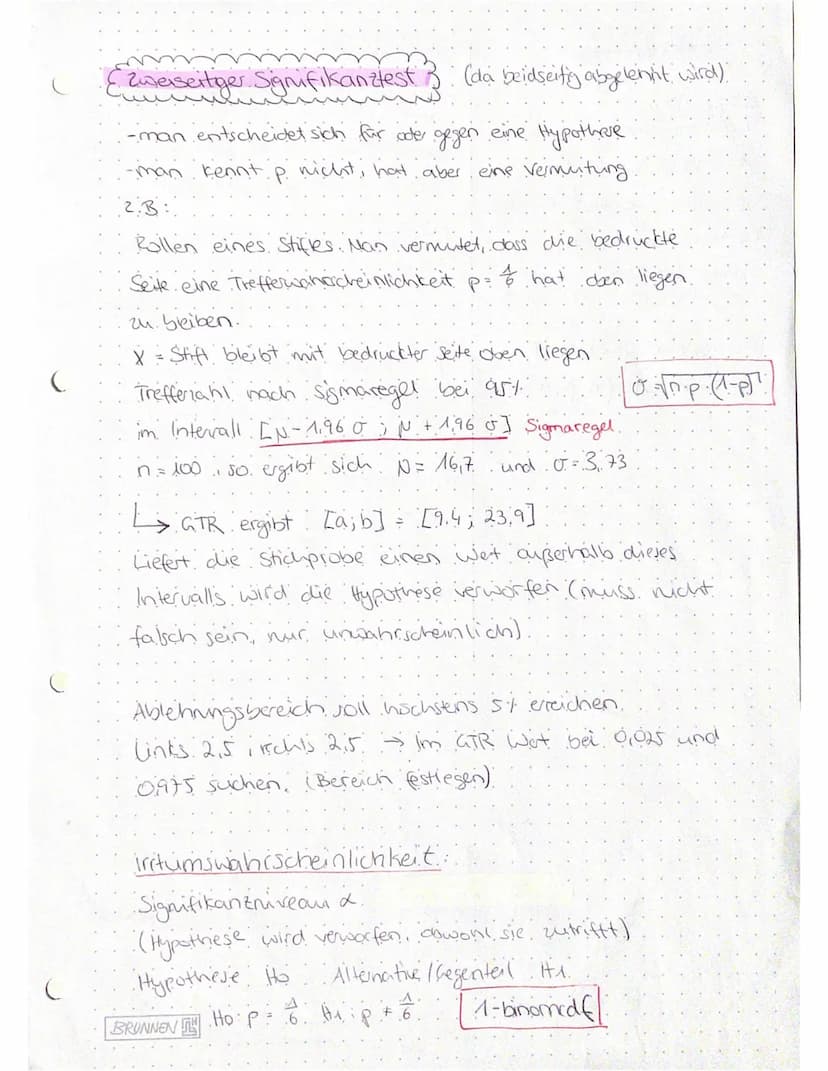 Zweiseitger Signifikanztest (da beidseitig abgelehnt wird)
-man entscheidet sich für oder gegen eine Hypothese
-man kennt p nicht, hat aber eine Vermutung
z.B:
Rollen eines Stiftes. Man vermutet, dass die bedruckte
Seite eine Trefferwahrscheinlichkeit p= 1/6 hat oben liegen
zu bleiben.
X = Stift bleibt mit bedruckter Seite oben liegen
Trefferzahl nach Sigmaregel bei 95%
σ=√n·p·(1-p)
im Intervall [μ-1,96 σ ; μ+1,96 σ] Sigmaregel
n=100, so ergibt sich μ= 16,7 und σ=3,73
↳ GTR ergibt [a;b] = [9.4; 23,9]
Liefert die Stichprobe einen Wet außerhalb dieses
Intervalls wird die Hypothese verworfen (muss nicht
falsch sein, nur unwahrscheinlich).
Ablehnungsbereich soll höchstens 5% erreichen.
Links 2,5, rechts 2,5 → Im GTR Wet bei 0,025 und
0,975 suchen. (Bereich festlegen)
Irrtumswahrscheinlichkeit:
Signifikantniveau α
(Hypothese wird verworfen, obwohl sie zutrifft)
Hypothese H0 Alternative/Gegenteil H1
H0: p = 1/6 H1: p ≠ 1/6 1-binomcdf
BRUNNEN